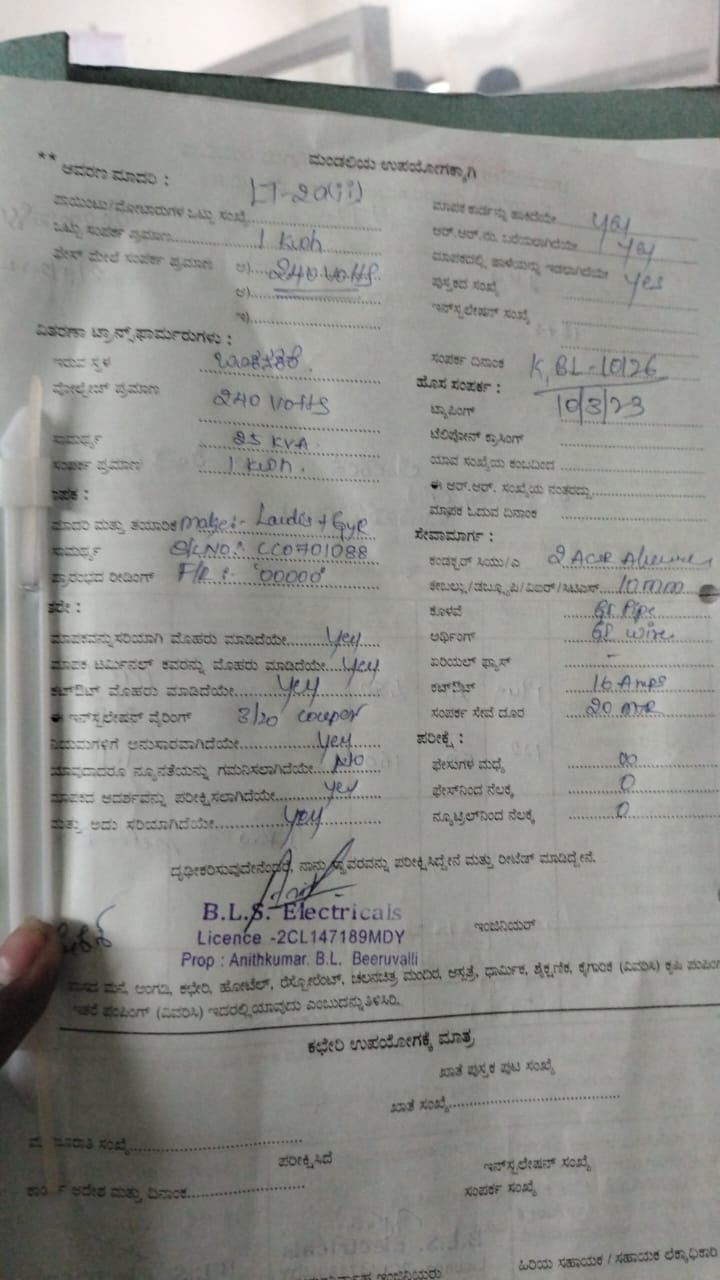 ಮಂಡಲಿಯ ಉಪಯೋಗಕ್ಕಾಗಿ
** ಆವರಣ ಮಾದರಿ : LT-2a(ii)
ಪಾಯಿಂಟು/ಮೋಟಾರುಗಳ ಒಟ್ಟು ಸಂಖ್ಯೆ
ಒಟ್ಟು ಸಂಪರ್ಕ ಪ್ರಮಾಣ 1 Kwh
ಫೇಸ್ ಮೇಲೆ ಸಂಪರ್ಕ ಪ್ರಮಾಣ ಅ) 240 Volts
ಆ)
ಇ)
ವಿತರಣಾ ಟ್ರಾನ್ಸ್‌ಫಾರ್ಮರುಗಳು :
ಇರುವ ಸ್ಥಳ
ವೋಲ್ಟೇಜ್ ಪ್ರಮಾಣ 240 Volts
ಸಾಮರ್ಥ್ಯ 25 KVA
ಸಂಪರ್ಕ ಪ್ರಮಾಣ 1 Kwh
ಮಾದರಿ ಮತ್ತು ತಯಾರಿಕೆ make:- Landis + Gyr
ಸಾಮರ್ಥ್ಯ S/L NO:- CC0701088
ಪ್ರಾರಂಭದ ರೀಡಿಂಗ್ F/R :- '00000'
ಮಾಪಕವನ್ನು ಸರಿಯಾಗಿ ಮೊಹರು ಮಾಡಿದೆಯೇ Yes
ಮಾಪಕ ಟರ್ಮಿನಲ್ ಕವರನ್ನು ಮೊಹರು ಮಾಡಿದೆಯೇ Yes
ಕಟ್‌ಔಟ್ ಮೊಹರು ಮಾಡಿದೆಯೇ Yes
ಈ ಇನ್‌ಸ್ಟಲೇಷನ್ ವೈರಿಂಗ್ 3/20 copper
ನಿಯಮಗಳಿಗೆ ಅನುಸಾರವಾಗಿದೆಯೇ Yes
ಯಾವುದಾದರೂ ನ್ಯೂನತೆಯನ್ನು ಗಮನಿಸಲಾಗಿದೆಯೇ No
ಮಾಪಕದ ಆದರ್ಶವನ್ನು ಪರೀಕ್ಷಿಸಲಾಗಿದೆಯೇ Yes
ಮತ್ತು ಅದು ಸರಿಯಾಗಿದೆಯೇ Yes
ಮಾಪಕ ಕಾರ್ಡನ್ನು ಹಾಕಿದೆಯೇ Yes
ಆರ್.ಆರ್.ನಂ. ಬರೆಯಲಾಗಿದೆಯೇ Yes
ಮಾಪಕದಲ್ಲಿ ಹಾಳೆಯನ್ನು ಇಡಲಾಗಿದೆಯೇ Yes
ಪುಸ್ತಕದ ಸಂಖ್ಯೆ
ಇನ್‌ಸ್ಟಲೇಷನ್ ಸಂಖ್ಯೆ
ಸಂಪರ್ಕ ದಿನಾಂಕ K, BL-10126
ಹೊಸ ಸಂಪರ್ಕ : 10/3/23
ಟ್ಯಾಪಿಂಗ್
ಟೆಲಿಫೋನ್ ಕ್ರಾಸಿಂಗ್
ಯಾವ ಸಂಖ್ಯೆಯ ಕಂಬದಿಂದ
ಈ ಆರ್.ಆರ್. ಸಂಖ್ಯೆಯ ನಂತರದ್ದು
ಮಾಪಕ ಓದುವ ದಿನಾಂಕ
ಸೇವಾಮಾರ್ಗ :
ಕಂಡಕ್ಟರ್ ಸಿಯು/ಎ 2 ACSR
ಕೇಬಲ್ಲು/ಡಬ್ಲ್ಯೂಪಿ/ವಿಐಆರ್/ಸಿಟಿಎಸ್ 10 mm
ಕೊಳವೆ GI Pipe
ಅರ್ಥಿಂಗ್ GI wire
ಏರಿಯಲ್ ಫ್ಯೂಸ್ -
ಕಟ್‌ಔಟ್ 16 Amps
ಸಂಪರ್ಕ ಸೇವೆ ದೂರ 20 mtr
ಪರೀಕ್ಷೆ :
ಫೇಸುಗಳ ಮಧ್ಯೆ ∞
ಫೇಸ್‌ನಿಂದ ನೆಲಕ್ಕೆ 0
ನ್ಯೂಟ್ರಲ್‌ನಿಂದ ನೆಲಕ್ಕೆ 0
ದೃಢೀಕರಿಸುವುದೇನೆಂದರೆ, ನಾನು ಸ್ಥಾವರವನ್ನು ಪರೀಕ್ಷಿಸಿದ್ದೇನೆ ಮತ್ತು ರೀಟೆಡ್ ಮಾಡಿದ್ದೇನೆ.
B.L.S. Electricals
Licence -2CL147189MDY
Prop : Anithkumar. B.L. Beeruvalli
ಇಂಜಿನಿಯರ್
ವಾಸದ ಮನೆ, ಅಂಗಡಿ, ಕಛೇರಿ, ಹೋಟೆಲ್, ರೆಸ್ಟೋರೆಂಟ್, ಚಲನಚಿತ್ರ ಮಂದಿರ, ಆಸ್ಪತ್ರೆ, ಧಾರ್ಮಿಕ, ಶೈಕ್ಷಣಿಕ, ಕೈಗಾರಿಕೆ (ವಿವರಿಸಿ) ಕೃಷಿ ಪಂಪಿಂಗ್
ಇತರೆ ಪಂಪಿಂಗ್ (ವಿವರಿಸಿ) ಇದರಲ್ಲಿ ಯಾವುದು ಎಂಬುದನ್ನು ತಿಳಿಸಿರಿ.
ಕಛೇರಿ ಉಪಯೋಗಕ್ಕೆ ಮಾತ್ರ
ಖಾತೆ ಪುಸ್ತಕ ಪುಟ ಸಂಖ್ಯೆ
ಖಾತೆ ಸಂಖ್ಯೆ
ಮಂಜೂರಾತಿ ಸಂಖ್ಯೆ
ಪರೀಕ್ಷಿಸಿದೆ
ಇನ್‌ಸ್ಟಲೇಷನ್ ಸಂಖ್ಯೆ
ಆದೇಶ ಮತ್ತು ದಿನಾಂಕ
ಸಂಪರ್ಕ ಸಂಖ್ಯೆ
ಹಿರಿಯ ಸಹಾಯಕ / ಸಹಾಯಕ ಲೆಕ್ಕಾಧಿಕಾರಿ